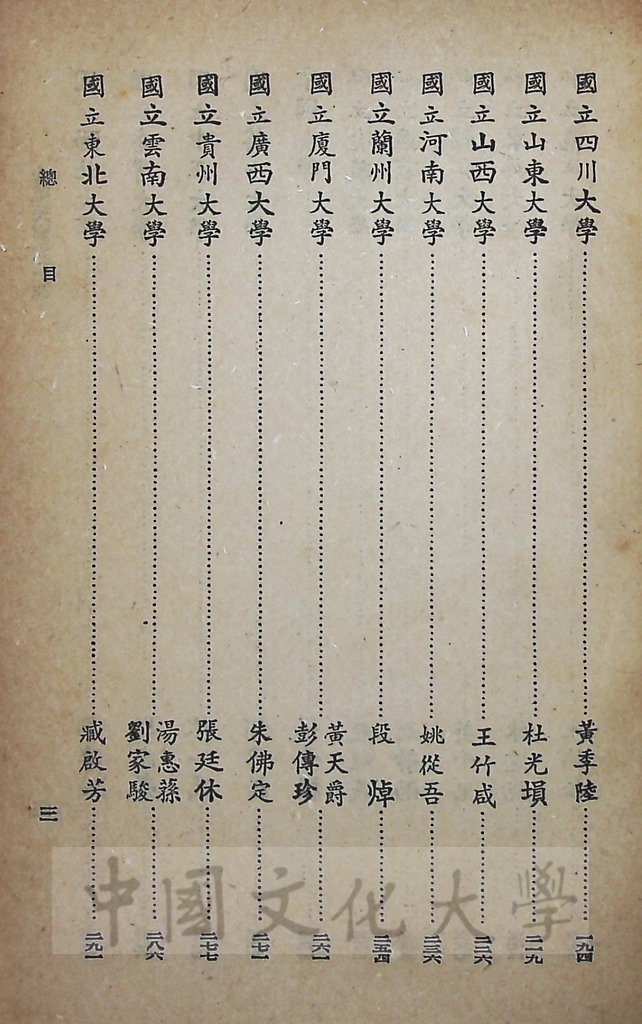 國立四川大學……黃季陸……一九四
國立山東大學……杜光塤……二一九
國立山西大學……王竹成……二二六
國立河南大學……姚從吾……二三六
國立蘭州大學……段焯……二五四
國立廈門大學……黃天爵 彭傳珍……二六一
國立廣西大學……朱佛定……二七一
國立貴州大學……張廷休……二七七
國立雲南大學……湯惠蓀 劉家駿……二八六
國立東北大學……臧啟芳……二九一
總目 三
中國文化大學